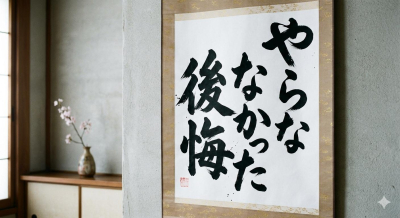 やらな
なかった
後悔